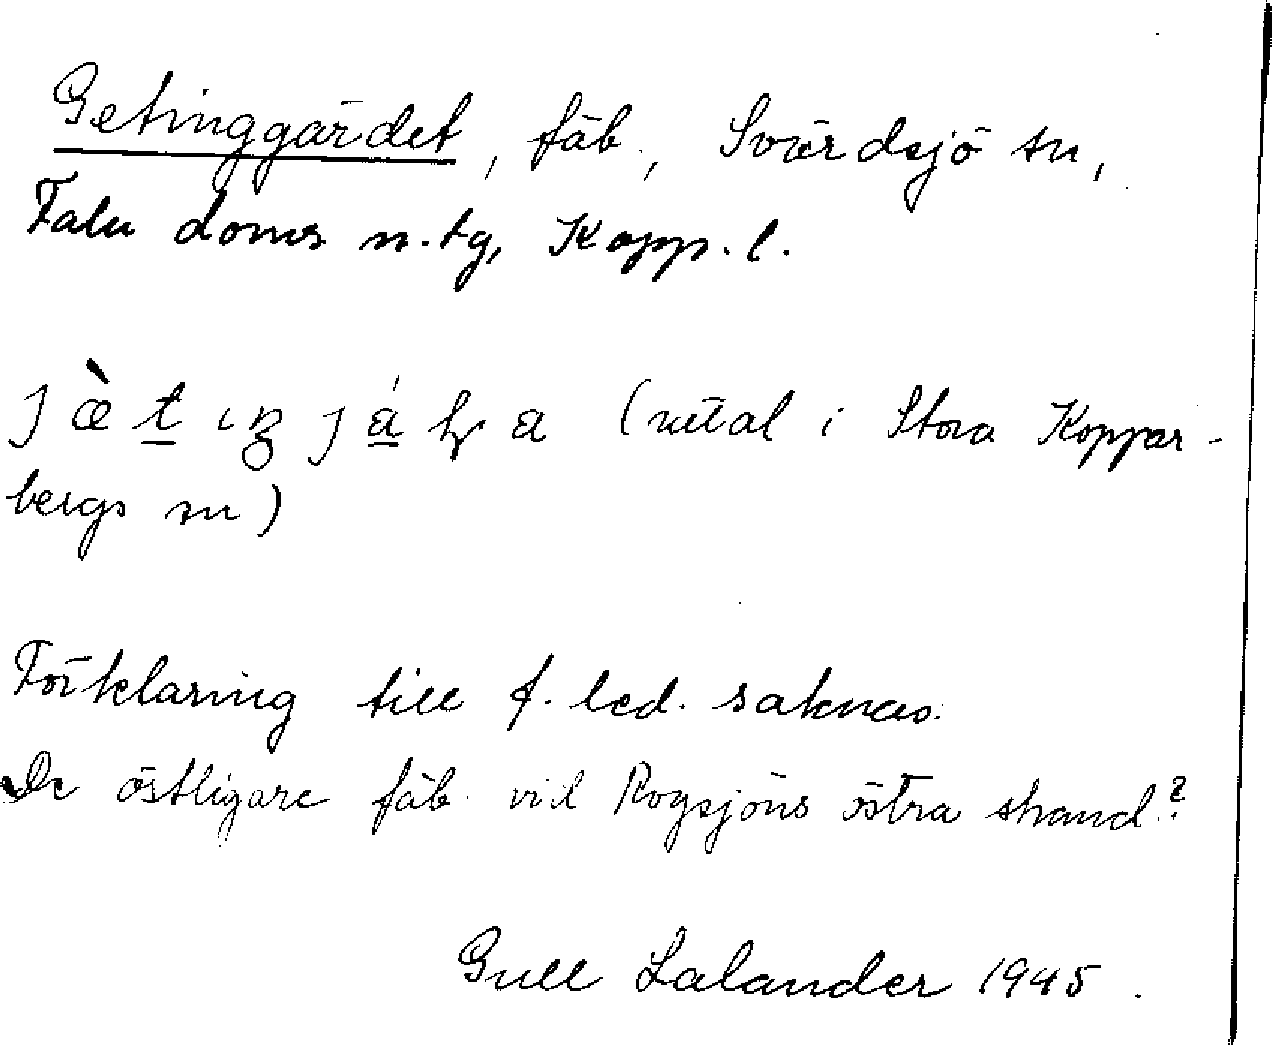 Getinggärdet, fäb., Svärdsjö sn,
Falu doms n. tg, Kopp. l.
(uttal i Stora Koppar-
bergs sn)
Förklaring till f. led. saknas.
De östligare fäb. vid Rogsjöns östra strand?
Gull Lalander 1945.